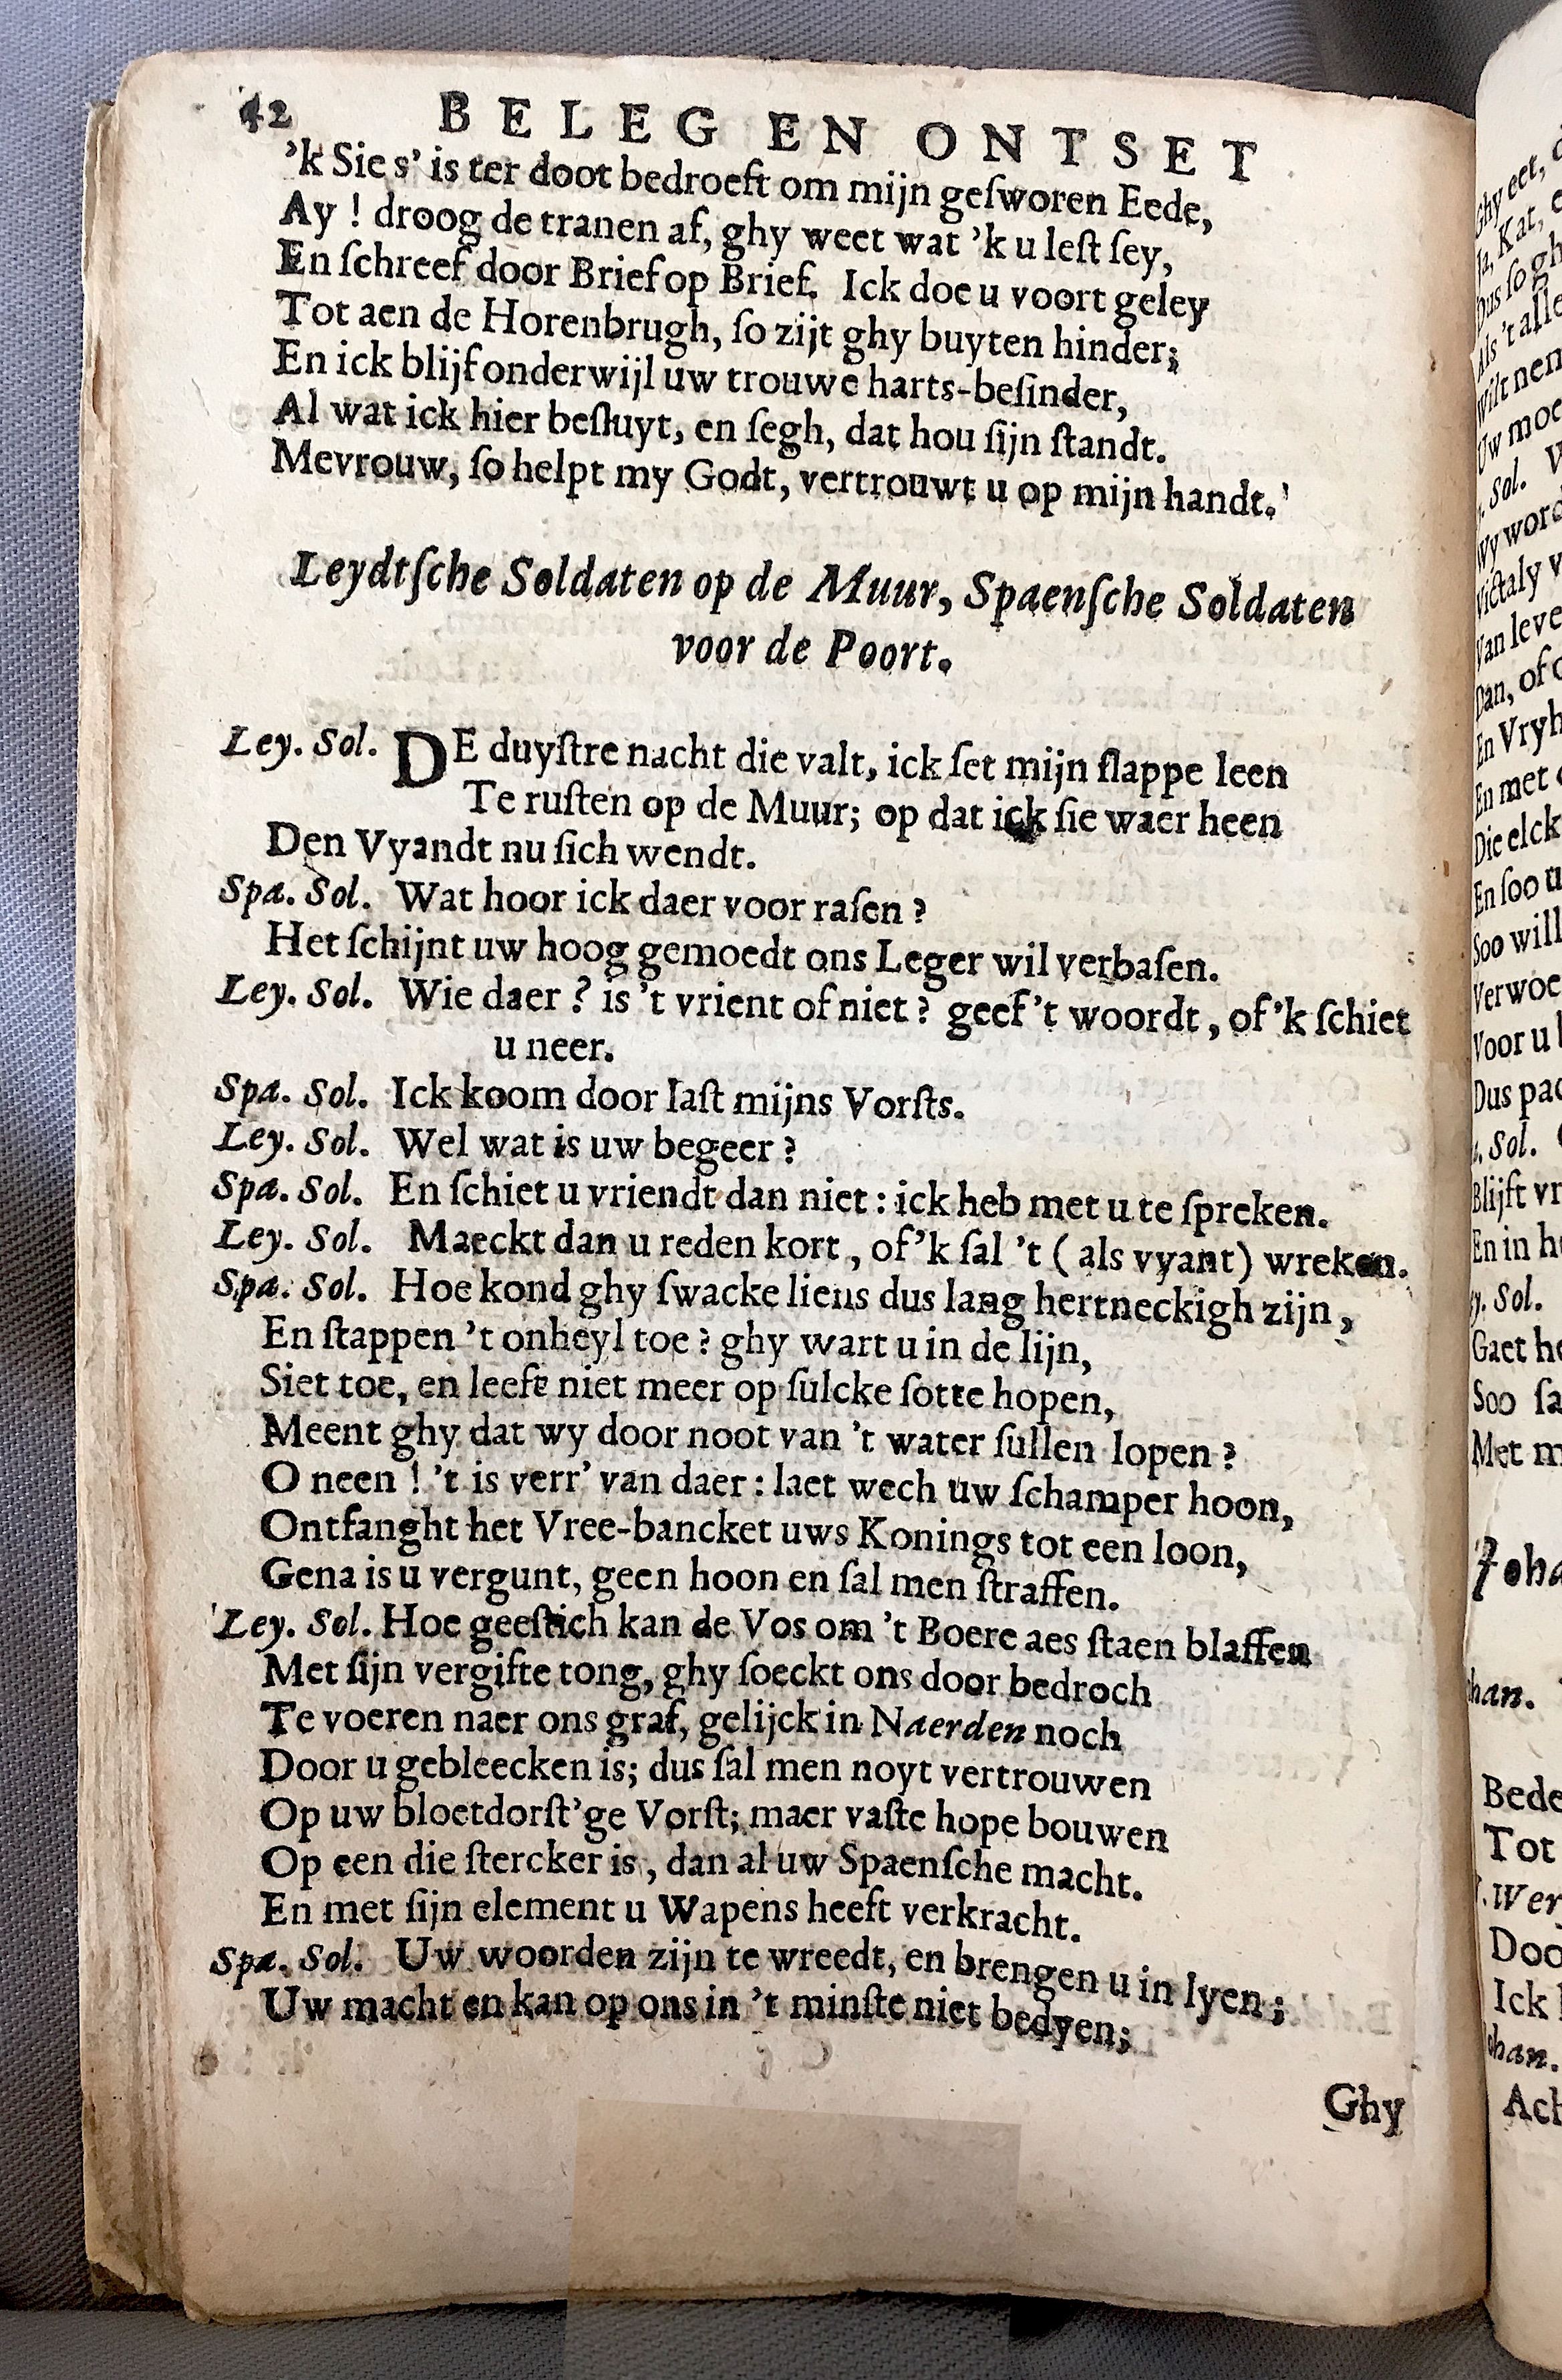 42 BELEG EN ONTSET
'k Sie s' is ter doot bedroeft om mijn geſworen Eede,
Ay ! droog de tranen af, ghy weet wat 'k u leſt ſey,
En ſchreef door Brief op Brief. Ick doe u voort geley
Tot aen de Horenbrugh, ſo zijt ghy buyten hinder;
En ick blijf onderwijl uw trouwe harts-beſinder,
Al wat ick hier beſluyt, en ſegh, dat hou ſijn ſtandt.
Mevrouw, ſo helpt my Godt, vertrouwt u op mijn handt.'
Leydtſche Soldaten op de Muur, Spaenſche Soldaten
voor de Poort.
Ley. Sol. DE duyſtre nacht die valt, ick ſet mijn ſlappe leen
Te ruſten op de Muur; op dat ick ſie waer heen
Den Vyandt nu ſich wendt.
Spa. Sol. Wat hoor ick daer voor raſen ?
Het ſchijnt uw hoog gemoedt ons Leger wil verbaſen.
Ley. Sol. Wie daer ? is 't vrient of niet ? geef 't woordt, of 'k ſchiet
u neer.
Spa. Sol. Ick koom door laſt mijns Vorſts.
Ley. Sol. Wel wat is uw begeer ?
Spa. Sol. En ſchiet u vriendt dan niet : ick heb met u te ſpreken.
Ley. Sol. Maeckt dan u reden kort, of 'k ſal 't ( als vyant) wreken.
Spa. Sol. Hoe kond ghy ſwacke liens dus lang hertneckigh zijn,
En ſtappen 't onheyl toe ? ghy wart u in de lijn,
Siet toe, en leeft niet meer op ſulcke ſotte hopen,
Meent ghy dat wy door noot van 't water ſullen lopen ?
O neen ! 't is verr' van daer : laet wech uw ſchamper hoon,
Ontfanght het Vree-bancket uws Konings tot een loon,
Gena is u vergunt, geen hoon en ſal men ſtraffen.
Ley. Sol. Hoe geeſtich kan de Vos om 't Boere aes ſtaen blaffen
Met ſijn vergifte tong, ghy ſoeckt ons door bedroch
Te voeren naer ons graf, gelijck in Naerden noch
Door u gebleecken is; dus ſal men noyt vertrouwen
Op uw bloetdorſt'ge Vorſt; maer vaſte hope bouwen
Op een die ſtercker is, dan al uw Spaenſche macht.
En met ſijn element u Wapens heeft verkracht.
Spa. Sol. Uw woorden zijn te wreedt, en brengen u in lyen;
Uw macht en kan op ons in 't minſte niet bedyen;
Ghy
Ghy eet,
Ja, Kat,
Dus ſo
Als 't alle
Uw moe
Sol.
Wy
Victaly
Van leve
Dan, of
En Vryh
En met
Die elck
En ſoo
Soo will
Verwoe
Voor u
Dus pac
Sol.
Blijft vr
En in
Sol.
Gaet
Soo ſa
Met
Joha
han.
Bede
Tot
Wer
Doo
Ick
ohan.
Ach